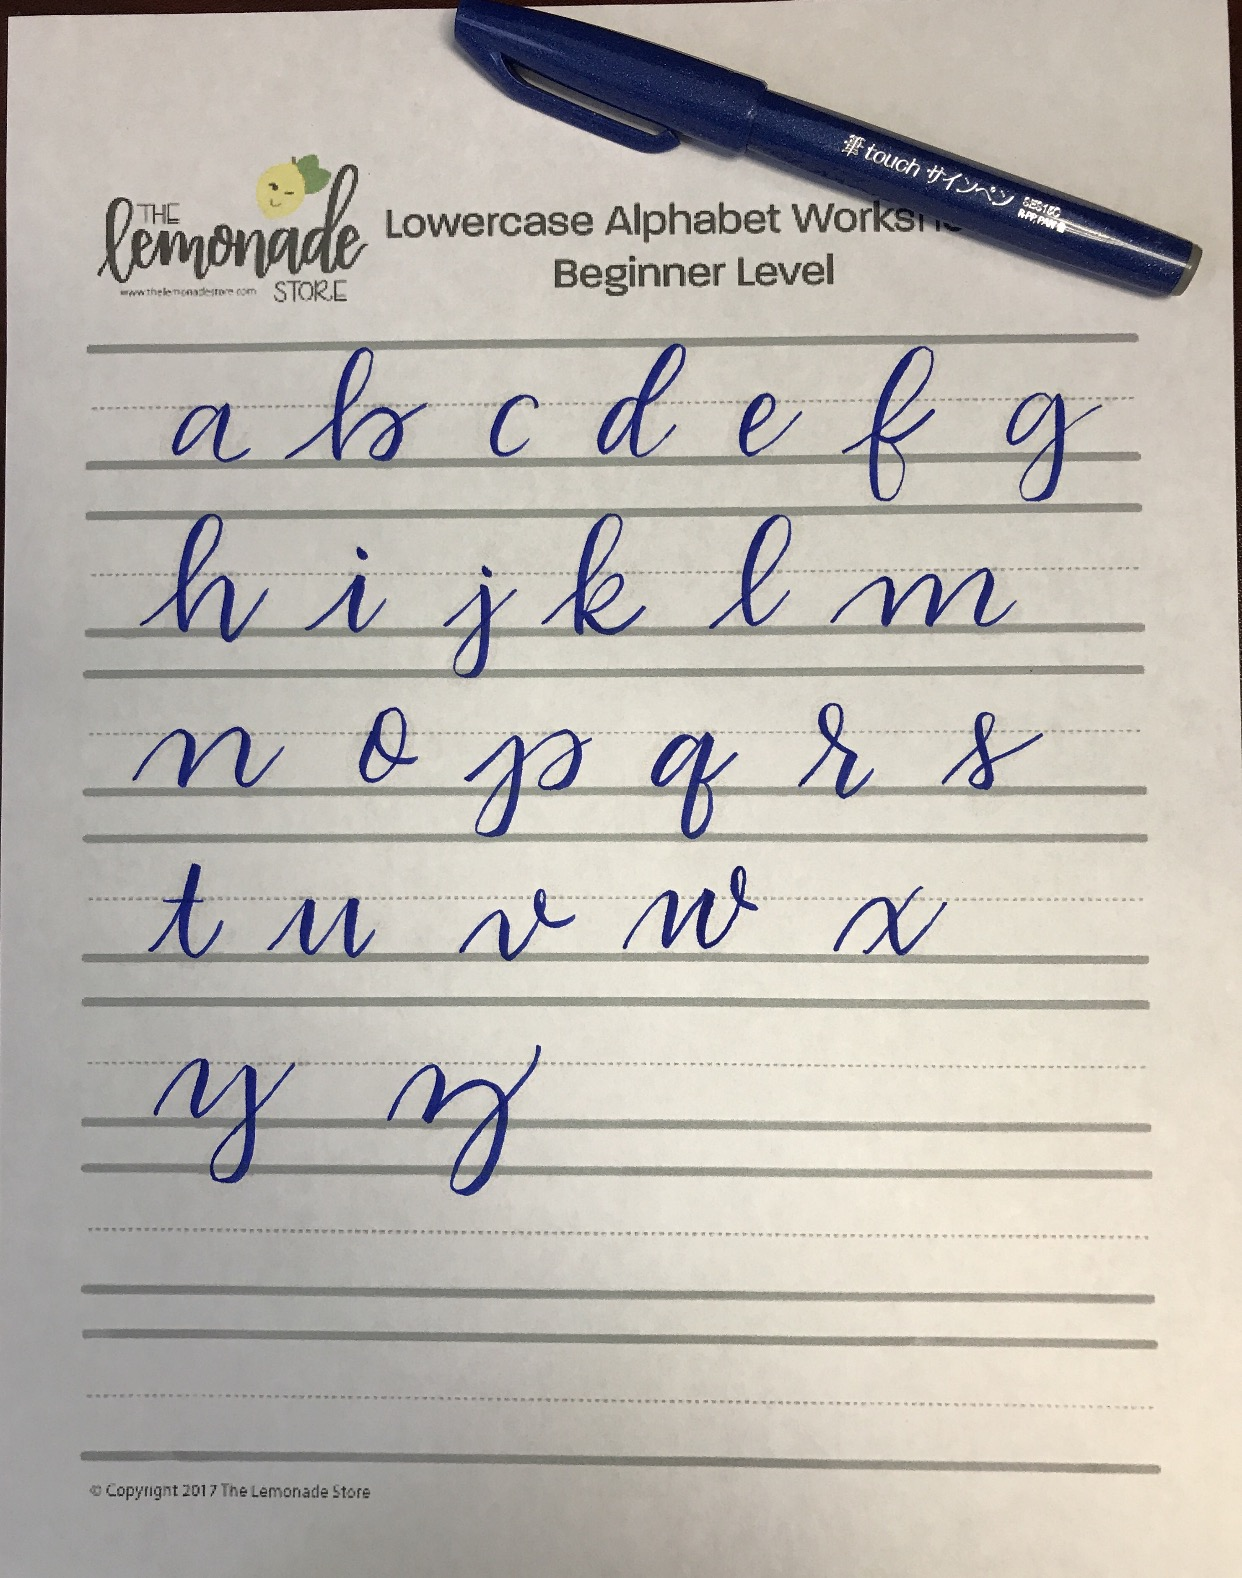 筆touch サインペン
SES15C
THE
lemonade
STORE
www.thelemonadestore.com
Lowercase Alphabet Works
Beginner Level
a b c d e f g
h i j k l m
n o p q r s
t u v w x
y z
© Copyright 2017 The Lemonade Store